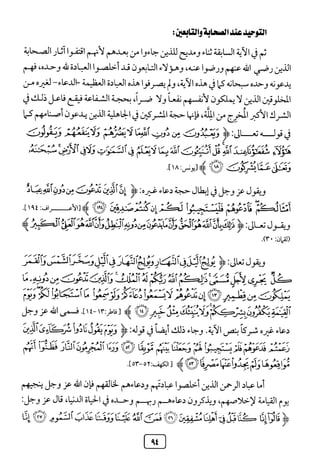 التوحيد عند الصحابة والتابعين:
ثم في الآية السابقة ثناء ومديح للذين جاءوا من بعدهم لأنهم اقتفوا آثار الصحابة
الذين رضي الله عنهم ورضوا عنه، وهؤلاء التابعون قد أخلصوا العبادة لله وحده، فهم
يدعونه وحده سبحانه كما في هذه الآية، ولم يصرفوا هذه العبادة العظيمة -الدعاء- لغيره من
المخلوقين الذين لا يملكون لأنفسهم نفعاً ولا ضراً، بحجة الشفاعة فيقع فاعل ذلك في
الشرك الأكبر المُخرج من الملّة، فإنها حجة المشركين في الجاهلية الذين يدعون أصنامهم كما
في قوله تعالى: ﴿ وَيَعْبُدُونَ مِن دُونِ اللَّهِ مَا لَا يَضُرُّهُمْ وَلَا يَنفَعُهُمْ وَيَقُولُونَ
هَٰؤُلَاءِ شُفَعَاؤُنَا عِندَ اللَّهِ قُلْ أَتُنَبِّئُونَ اللَّهَ بِمَا لَا يَعْلَمُ فِي السَّمَاوَاتِ وَلَا فِي الْأَرْضِ سُبْحَانَهُ
وَتَعَالَىٰ عَمَّا يُشْرِكُونَ ﴿١٨﴾ [يونس: ١٨].
ويقول عز وجل في إبطال حجة دعاء غيره: ﴿ إِنَّ الَّذِينَ تَدْعُونَ مِن دُونِ اللَّهِ عِبَادٌ
أَمْثَالُكُمْ فَادْعُوهُمْ فَلْيَسْتَجِيبُوا لَكُمْ إِن كُنتُمْ صَادِقِينَ ﴿١٩٤﴾ [الأعراف: ١٩٤].
ويقول تعالى: ﴿ ذَٰلِكَ بِأَنَّ اللَّهَ هُوَ الْحَقُّ وَأَنَّ مَا يَدْعُونَ مِن دُونِهِ الْبَاطِلُ وَأَنَّ اللَّهَ هُوَ الْعَلِيُّ الْكَبِيرُ ﴾
(لقمان: ٣٠).
ويقول تعالى: ﴿ يُولِجُ اللَّيْلَ فِي النَّهَارِ وَيُولِجُ النَّهَارَ فِي اللَّيْلِ وَسَخَّرَ الشَّمْسَ وَالْقَمَرَ
كُلٌّ يَجْرِي لِأَجَلٍ مُّسَمًّى ذَٰلِكُمُ اللَّهُ رَبُّكُمْ لَهُ الْمُلْكُ وَالَّذِينَ تَدْعُونَ مِن دُونِهِ مَا
يَمْلِكُونَ مِن قِطْمِيرٍ ﴿١٣﴾ إِن تَدْعُوهُمْ لَا يَسْمَعُوا دُعَاءَكُمْ وَلَوْ سَمِعُوا مَا اسْتَجَابُوا لَكُمْ وَيَوْمَ
الْقِيَامَةِ يَكْفُرُونَ بِشِرْكِكُمْ وَلَا يُنَبِّئُكَ مِثْلُ خَبِيرٍ ﴿١٤﴾ [فاطر: ١٣-١٤]. فسمى الله عز وجل
دعاء غيره شركاً بنص الآية. وجاء ذلك أيضاً في قوله: ﴿ وَيَوْمَ يَقُولُ نَادُوا شُرَكَائِيَ الَّذِينَ
زَعَمْتُمْ فَدَعَوْهُمْ فَلَمْ يَسْتَجِيبُوا لَهُمْ وَجَعَلْنَا بَيْنَهُم مَّوْبِقًا ﴿٥٢﴾ وَرَأَى الْمُجْرِمُونَ النَّارَ فَظَنُّوا أَنَّهُم
مُّوَاقِعُوهَا وَلَمْ يَجِدُوا عَنْهَا مَصْرِفًا ﴿٥٣﴾ [الكهف: ٥٢-٥٣].
أما عباد الرحمن الذين أخلصوا عبادتهم ودعاءهم لخالقهم فإن الله عز وجل ينجيهم
يوم القيامة لإخلاصهم، ويذكرون دعاءهم ربهم وحده في الحياة الدنيا، قال عز وجل:
﴿ قَالُوا إِنَّا كُنَّا قَبْلُ فِي أَهْلِنَا مُشْفِقِينَ ﴿٢٦﴾ فَمَنَّ اللَّهُ عَلَيْنَا وَوَقَانَا عَذَابَ السَّمُومِ ﴿٢٧﴾ إِنَّا
٩٤